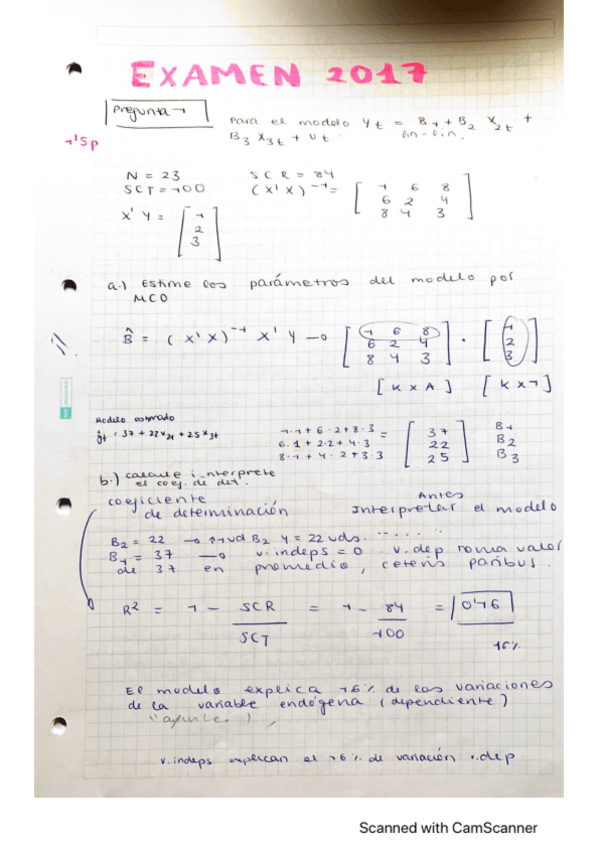 EXAMEN 2017
Pregunta 1
1'5p
Para el modelo Yt = B1 + B2 X2t +
B3 X3t + Ut · lin-lin.
N = 23 SCR = 84
SCT = 100 (X'X)⁻¹ = [ 1 6 8
6 2 4
8 4 3 ]
X'Y = [ 1
2
3 ]
a.) Estime los parámetros del modelo por
MCO
B̂ = (X'X)⁻¹ X'Y → [ 1 6 8
6 2 4
8 4 3 ] · [ 1
2
3 ]
[K x A] [K x 1]
Modelo estimado
ŷt = 37 + 22x2t + 25x3t
1·1 + 6·2 + 8·3
6·1 + 2·2 + 4·3 =
8·1 + 4·2 + 3·3
[ 37
22
25 ]
B1
B2
B3
b.) calcule i interprete
el coej. de det.
coejiciente
de determinación
Antes
Interpretar el modelo
B2 = 22 → ↑1ud B2 Y = 22 uds.
B1 = 37 → v.indeps = 0 v.dep toma valor
de 37 en promedio, ceteris paribus.
R² = 1 - SCR / SCT = 1 - 84 / 100 = 0'16
16%
El modelo explica 16% de las variaciones
de la variable endógena (dependiente)
v.indeps explican el 16% de variación v.dep
Scanned with CamScanner